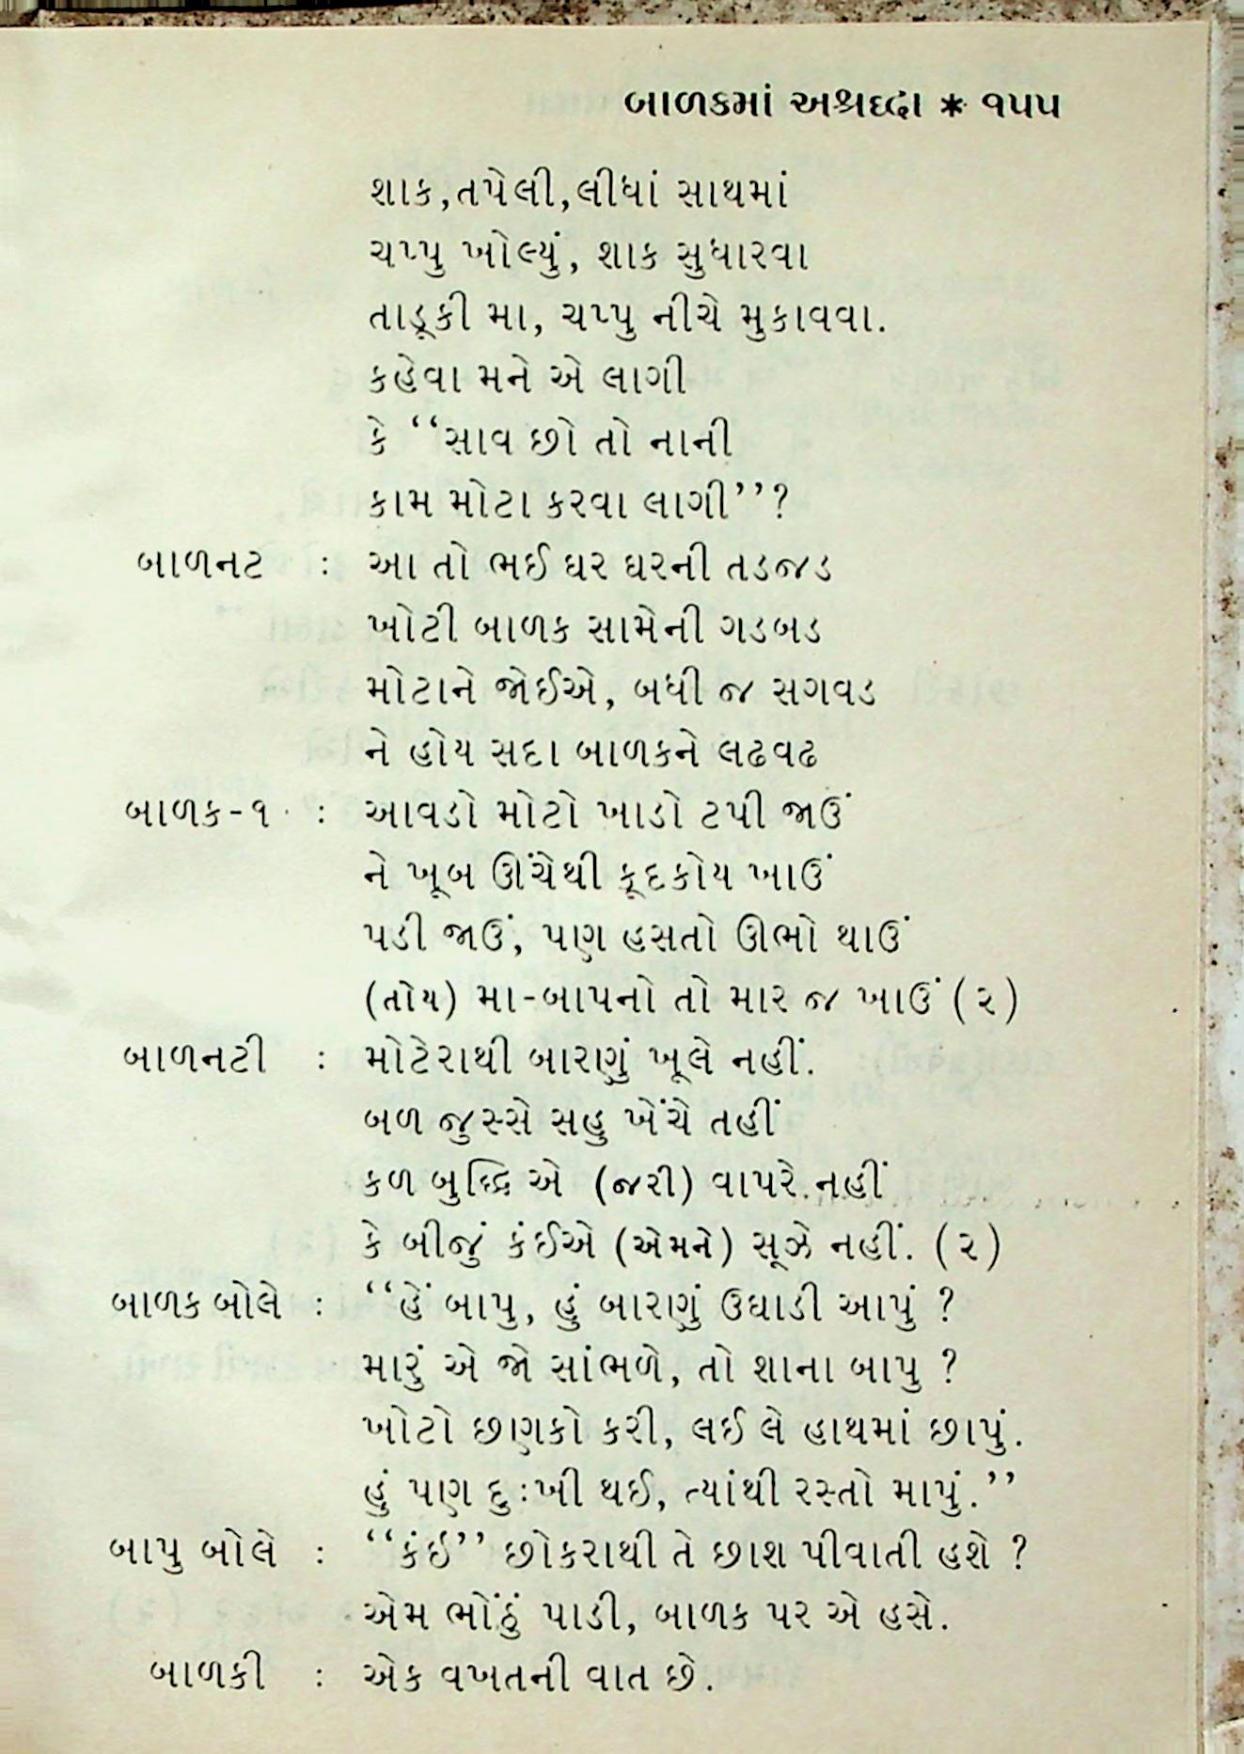 બાળકમાં અશ્રદ્ધા * ૧૫૫
શાક,તપેલી,લીધાં સાથમાં
ચપ્પુ ખોલ્યું, શાક સુધારવા
તાડૂકી મા, ચપ્પુ નીચે મુકાવવા.
કહેવા મને એ લાગી
કે ‘‘સાવ છો તો નાની
કામ મોટા કરવા લાગી’’?
બાળનટ : આ તો ભઈ ઘર ઘરની તડજડ
ખોટી બાળક સામેની ગડબડ
મોટાને જોઈએ, બધી જ સગવડ
ને હોય સદા બાળકને લઢવઢ
બાળક-૧ : આવડો મોટો ખાડો ટપી જાઉં
ને ખૂબ ઊંચેથી કૂદકોય ખાઉં
પડી જાઉં, પણ હસતો ઊભો થાઉં
(તોય) મા-બાપનો તો માર જ ખાઉં (૨)
બાળનટી : મોટેરાથી બારણું ખૂલે નહીં.
બળ જુસ્સે સહુ ખેંચે તહીં
કળ બુદ્ધિ એ (જરી) વાપરે નહીં
કે બીજું કંઈએ (એમને) સૂઝે નહીં. (૨)
બાળક બોલે : ‘‘હેં બાપુ, હું બારણું ઉઘાડી આપું ?
મારું એ જો સાંભળે, તો શાના બાપુ ?
ખોટો છણકો કરી, લઈ લે હાથમાં છાપું.
હું પણ દુઃખી થઈ, ત્યાંથી રસ્તો માપું.’’
બાપુ બોલે : ‘‘કંઇ’’ છોકરાથી તે છાશ પીવાતી હશે ?
એમ ભોંઠું પાડી, બાળક પર એ હસે.
બાળકી : એક વખતની વાત છે.